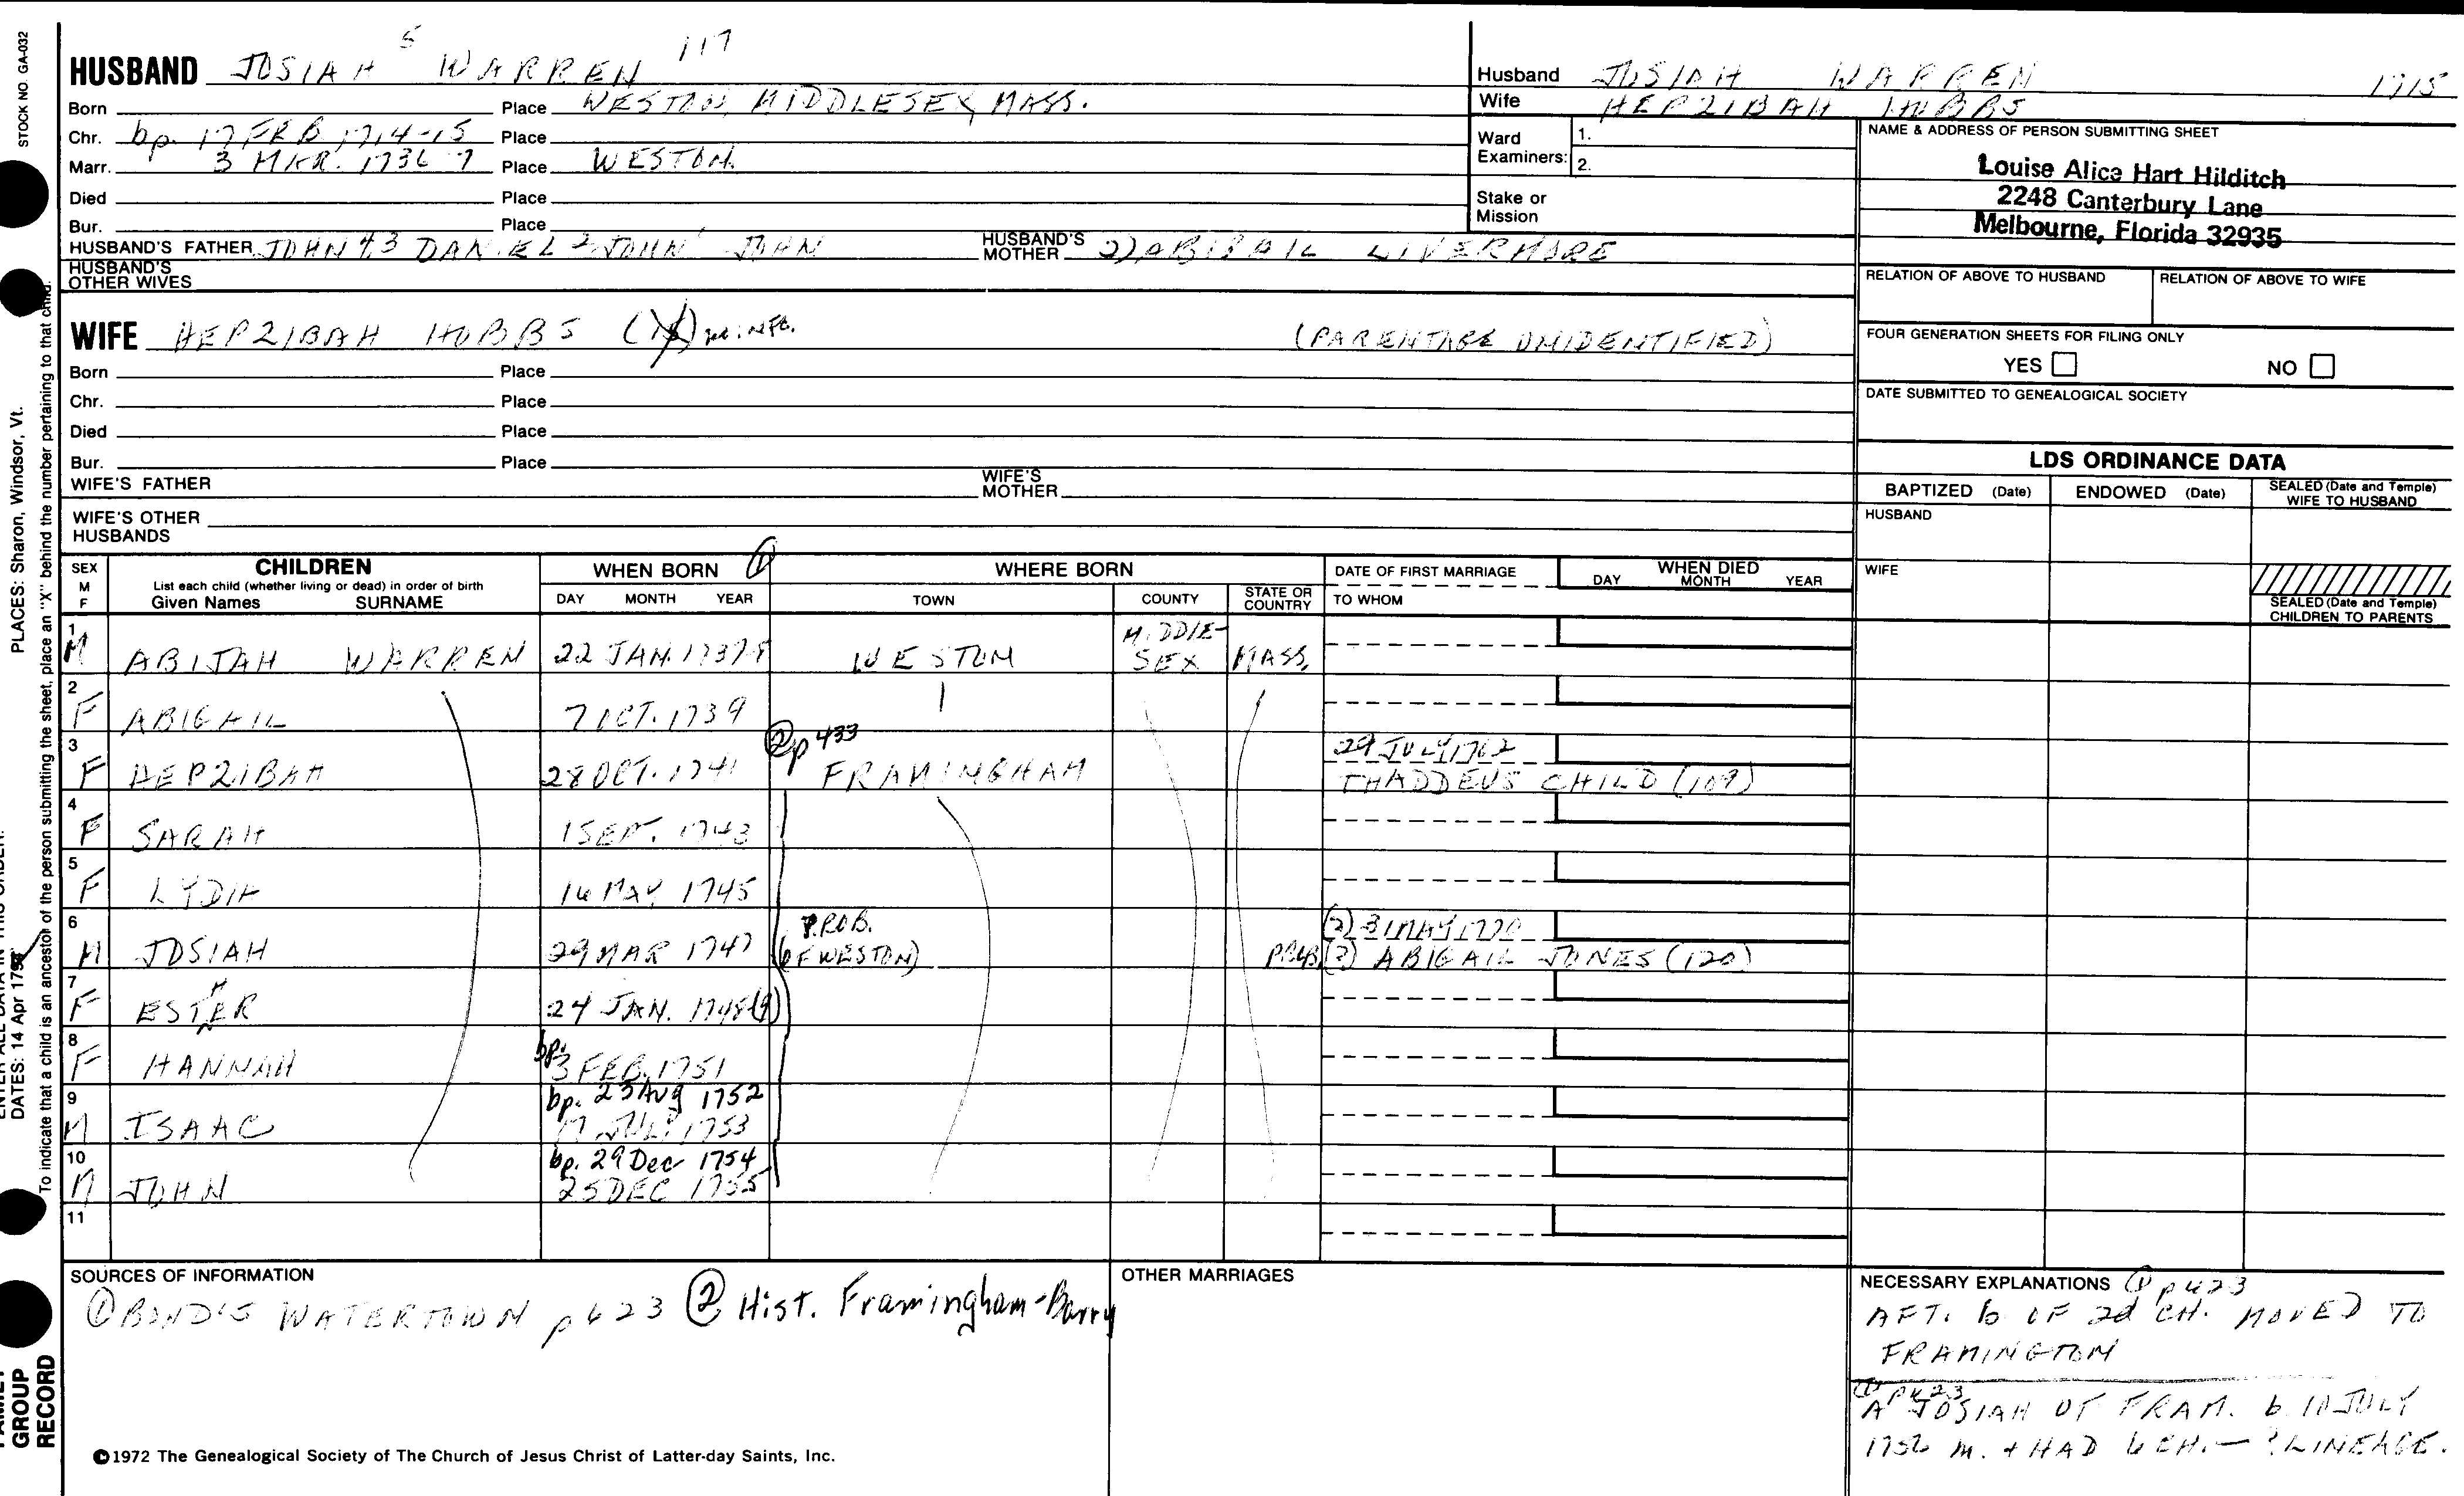 STOCK NO. GA-032
PLACES: Sharon, Windsor, Vt.
DATES: 14 Apr
To indicate that a child is an ancestor of the person submitting the sheet, place an "X" behind the number pertaining to that child.
GROUP
RECORD
HUSBAND JOSIAH 5 WARREN 117
Born Place WESTON, MIDDLESEX, MASS.
Chr. bp. 17 FEB 1714-15 Place
Marr. 3 MAR. 1736 7 Place WESTON.
Died Place
Bur. Place
HUSBAND'S FATHER JOHN 4,3 DANIEL 2 JOHN 1 JOHN HUSBAND'S MOTHER 2) ABIGAIL LIVERMORE
HUSBAND'S OTHER WIVES
WIFE HEPZIBAH HOBBS (PARENTAGE UNIDENTIFIED)
Born Place
Chr. Place
Died Place
Bur. Place
WIFE'S FATHER WIFE'S MOTHER
WIFE'S OTHER HUSBANDS
Husband JOSIAH WARREN 1715
Wife HEPZIBAH HOBBS
Ward Examiners: 1.
2.
Stake or Mission
NAME & ADDRESS OF PERSON SUBMITTING SHEET
Louise Alice Hart Hilditch
2248 Canterbury Lane
Melbourne, Florida 32935
RELATION OF ABOVE TO HUSBAND RELATION OF ABOVE TO WIFE
FOUR GENERATION SHEETS FOR FILING ONLY
YES NO
DATE SUBMITTED TO GENEALOGICAL SOCIETY
LDS ORDINANCE DATA
BAPTIZED (Date) ENDOWED (Date) SEALED (Date and Temple) WIFE TO HUSBAND
HUSBAND
WIFE
SEALED (Date and Temple) CHILDREN TO PARENTS
SEX M F CHILDREN WHEN BORN ① WHERE BORN DATE OF FIRST MARRIAGE WHEN DIED
List each child (whether living or dead) in order of birth
Given Names SURNAME DAY MONTH YEAR TOWN COUNTY STATE OR COUNTRY TO WHOM DAY MONTH YEAR
1 M ABIJAH WARREN 22 JAN. 1737-8 WESTON MIDDLE-SEX MASS.
2 F ABIGAIL 7 OCT. 1739
3 F HEPZIBAH 28 OCT. 1741 ② p 433 FRAMINGHAM 29 JULY 1762 THADDEUS CHILD (109)
4 F SARAH 1 SEPT. 1743
5 F LYDIA 16 MAY 1745
6 M JOSIAH 29 MAR 1747 PROB. (OF WESTON) (2) 31 MAY 1770 PROB. (2) ABIGAIL JONES (120)
7 F ESTHER 24 JAN. 1748(9)
8 F HANNAH bp. 3 FEB. 1751
9 M ISAAC bp. 23 Aug 1752 17 JULY 1753
10 M JOHN bp. 29 Dec 1754 25 DEC 1755
11
SOURCES OF INFORMATION
① BOND'S WATERTOWN p 623 ② Hist. Framingham-Barry
OTHER MARRIAGES
NECESSARY EXPLANATIONS ① p 623
AFT. b OF 2d CH. MOVED TO
FRAMINGTON
① p 623
A JOSIAH OF FRAM. b. 10 JULY
1756 m. + HAD 6 CH. — ? LINEAGE.
©1972 The Genealogical Society of The Church of Jesus Christ of Latter-day Saints, Inc.